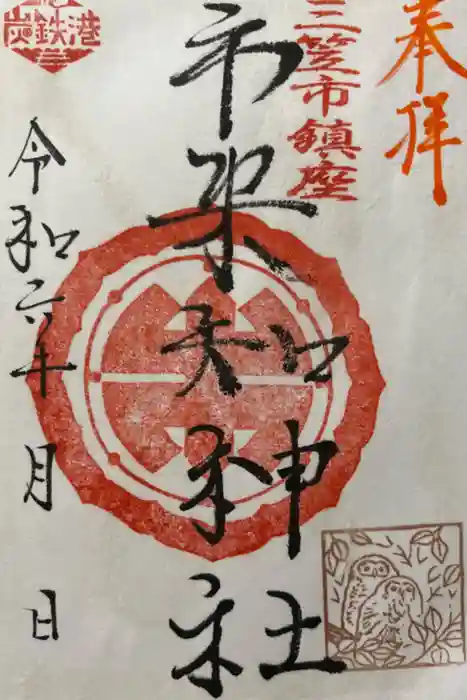 奉拝
三笠市鎮座
市来知神社
令和六年 月 日
炭鉄港